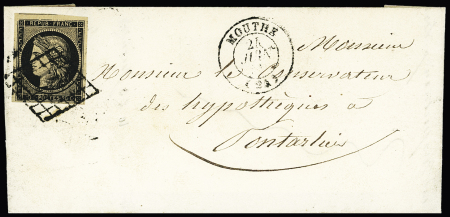 REPUB. FRANC.
MOUTHE
24
(24)
Monsieur
Monsieur le Conservateur
des hypothèques à
Pontarlier